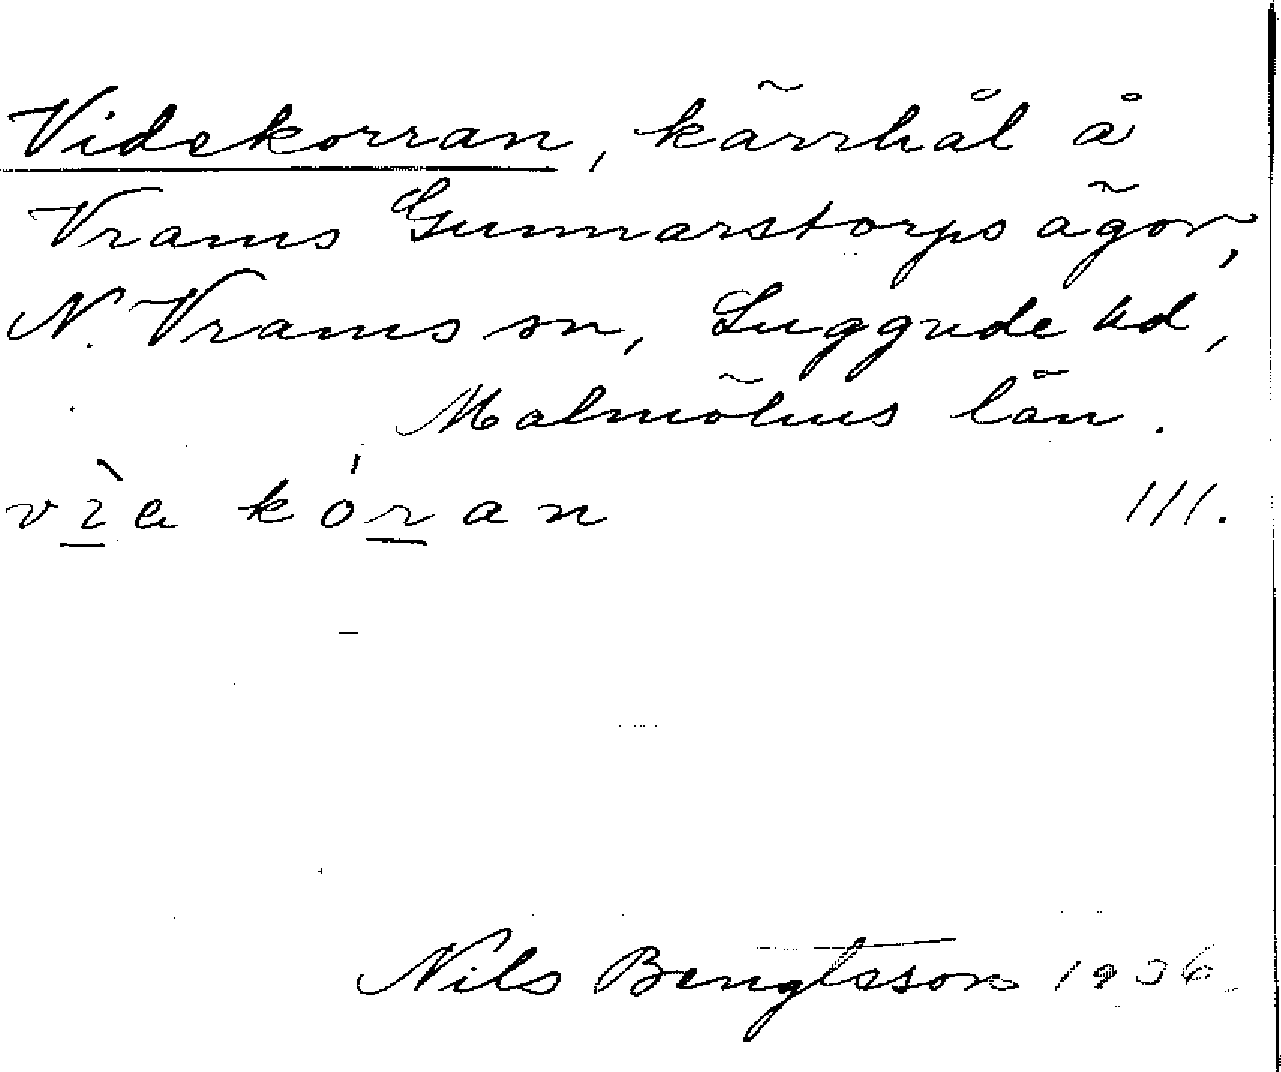 Videkorran, kärrhål å
Vrams Gunnarstorps ägor,
N. Vrams sn, Luggude hd,
Malmöhus län.
vìa kóran 111.
Nils Bengtsson 1936